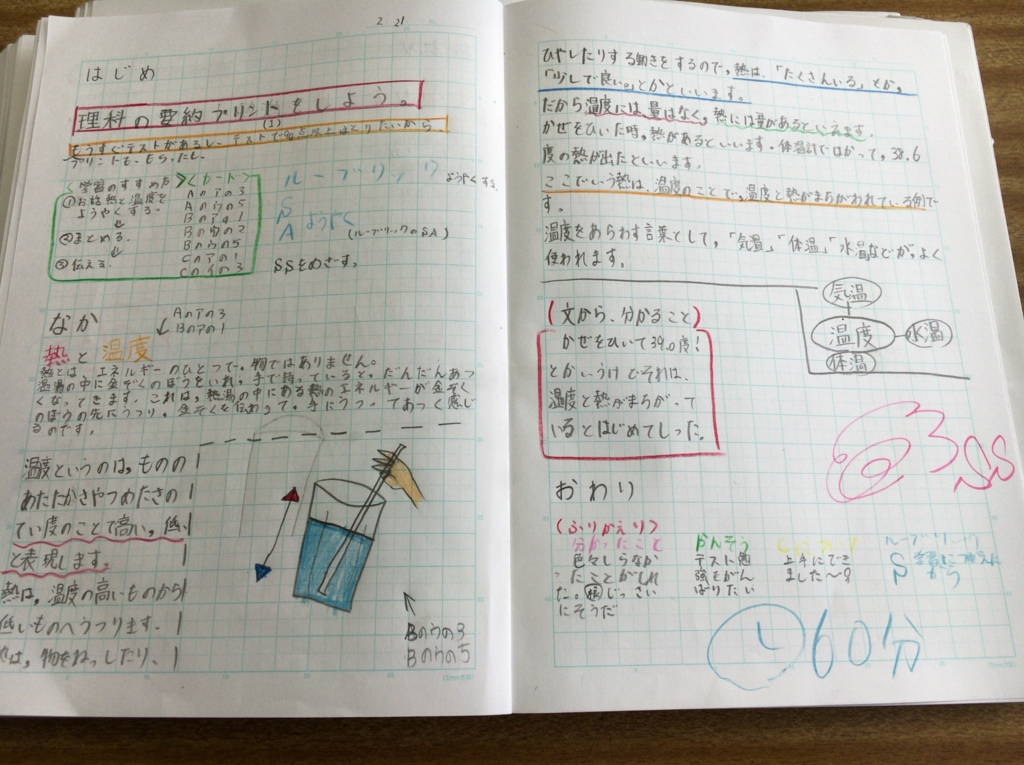 2 21
はじめ
理科の要約プリントをしよう。
(1)
もうすぐテストがあるし、テストで90点以上はとりたいから。
プリントも、もらったし。
学習のすすめ方
①お話 熱と温度を
ようやくする。
②まとめる。
③伝える。
<カード>
Aのアの3
Aのウの5
Bのアの1
Bの の2
Bのウの5
Cのアの1
Cのイの3
ルーブリック ようやくする
S
S
A ようやく
(ルーブリックのSA)
SSをめざす。
なか
Aのアの3
Bのアの1
熱と温度
熱とは、エネルギーのひとつで。物ではありません。
湯の中に金ぞくのぼうをいれ、手で持っていると。だんだんあつ
くなってきます。これは、熱湯の中にある熱のエネルギーが金ぞく
のぼうの先にうつり。金ぞくを伝わって。手にうつってあつく感じ
るのです。
温度というのは、ものの
あたたかさやつめたさの
てい度のことで高い。低い
と表現します。
熱は、温度の高いものから
低いものへうつります。
は、物をねっしたり、
Bのウの3
Bのウの5
ひやしたりする働きをするので。熱は、「たくさんいる」とか。
「少しで良い。」とかといいます。
だから温度には、量はなく。熱には量があるといえます。
かぜをひいた時。熱があるといいます。体温計ではかって。38.6
度の熱が出たといいます。
ここでいう熱は、温度のことで。温度と熱がまちがわれている例で
す。
温度をあらわす言葉として。「気温」、「体温」、「水温などが。よく
使われます。
気温
温度
水温
体温
(文から、分かること)
かぜをひいて39.0度!
とかいうけどそれは、
温度と熱がまちがって
いるとはじめてしった。
SS
おわり
(ふりかえり)
分かったこと
色々しらなか
ったことがしれ
た。じっさい
にそうだ
かんそう
テスト勉
強をがん
ばりたい
上手にでき
ました〜?
ルーブリック
S
から
60分